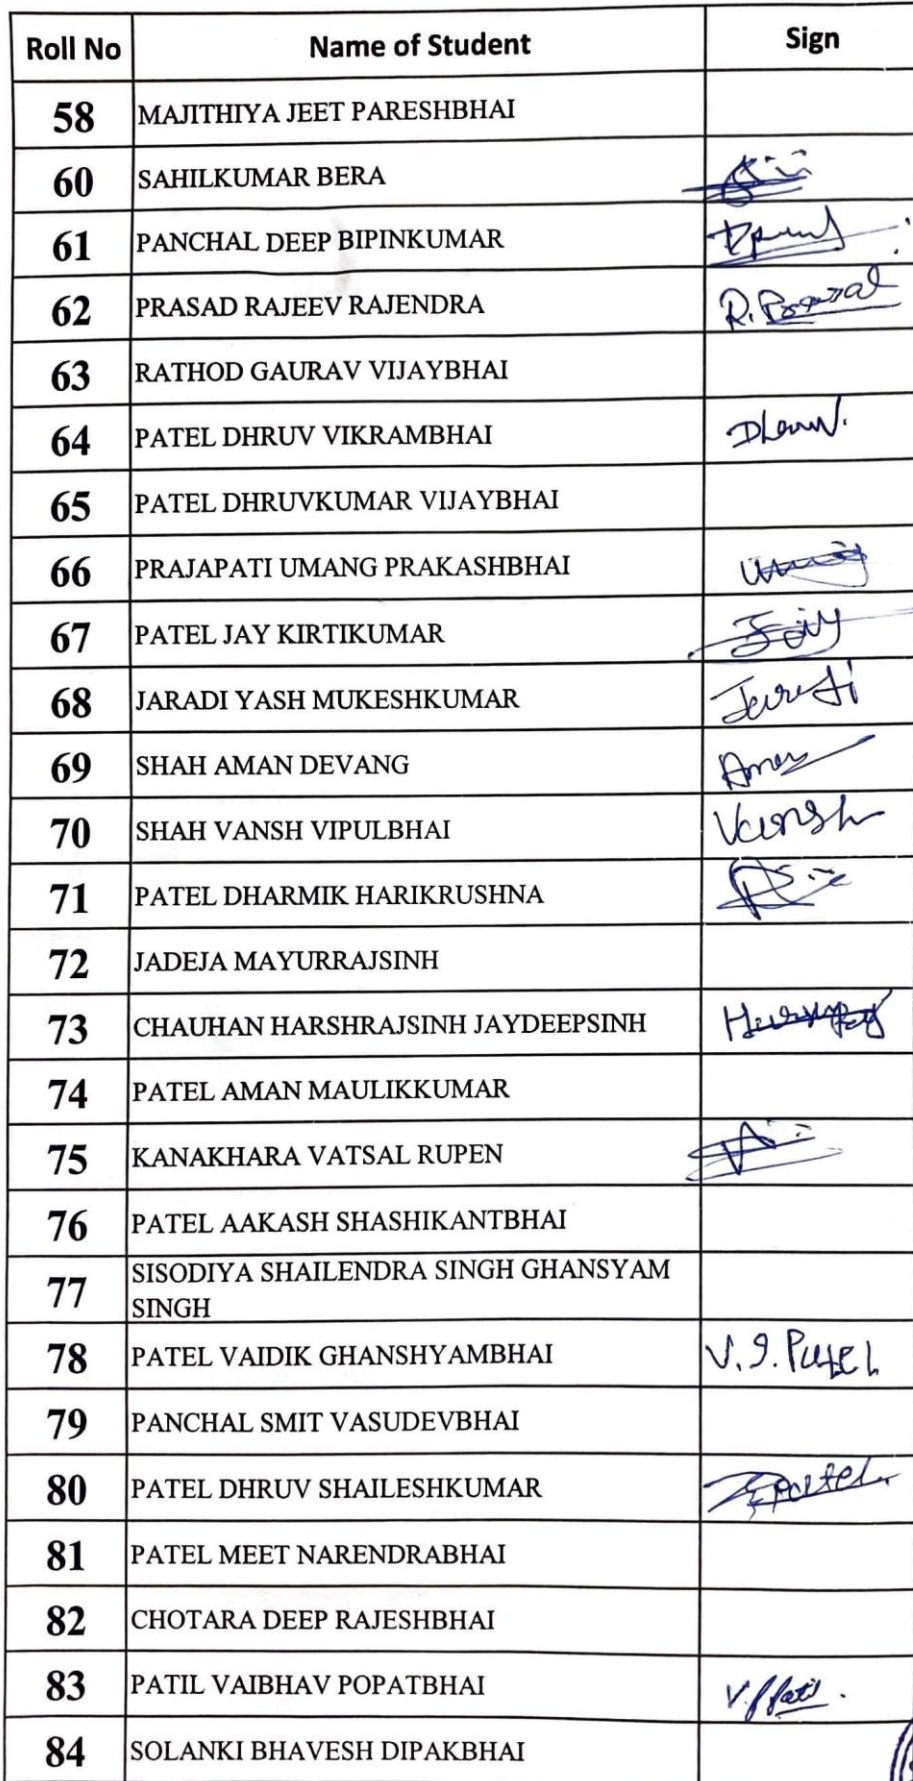 Roll No Name of Student Sign
58 MAJITHIYA JEET PARESHBHAI
60 SAHILKUMAR BERA
61 PANCHAL DEEP BIPINKUMAR
62 PRASAD RAJEEV RAJENDRA
63 RATHOD GAURAV VIJAYBHAI
64 PATEL DHRUV VIKRAMBHAI
65 PATEL DHRUVKUMAR VIJAYBHAI
66 PRAJAPATI UMANG PRAKASHBHAI
67 PATEL JAY KIRTIKUMAR
68 JARADI YASH MUKESHKUMAR
69 SHAH AMAN DEVANG
70 SHAH VANSH VIPULBHAI Vansh
71 PATEL DHARMIK HARIKRUSHNA
72 JADEJA MAYURRAJSINH
73 CHAUHAN HARSHRAJSINH JAYDEEPSINH
74 PATEL AMAN MAULIKKUMAR
75 KANAKHARA VATSAL RUPEN
76 PATEL AAKASH SHASHIKANTBHAI
77 SISODIYA SHAILENDRA SINGH GHANSYAM
SINGH
78 PATEL VAIDIK GHANSHYAMBHAI V.G.Patel
79 PANCHAL SMIT VASUDEVBHAI
80 PATEL DHRUV SHAILESHKUMAR
81 PATEL MEET NARENDRABHAI
82 CHOTARA DEEP RAJESHBHAI
83 PATIL VAIBHAV POPATBHAI
84 SOLANKI BHAVESH DIPAKBHAI